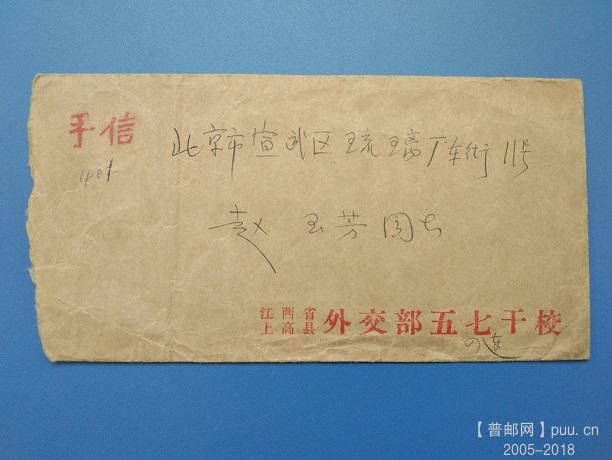 手信
401
北京市宣武区琉璃厂东街11号
赵玉芳同志
江西省
上高县 外交部五七干校
四连
【普邮网】puu.cn
2005-2018